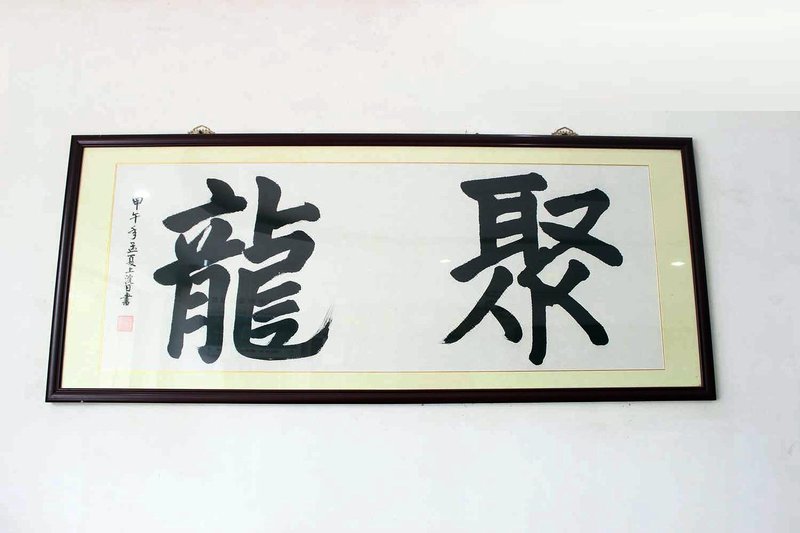 聚龍
甲午年孟夏上浣日書